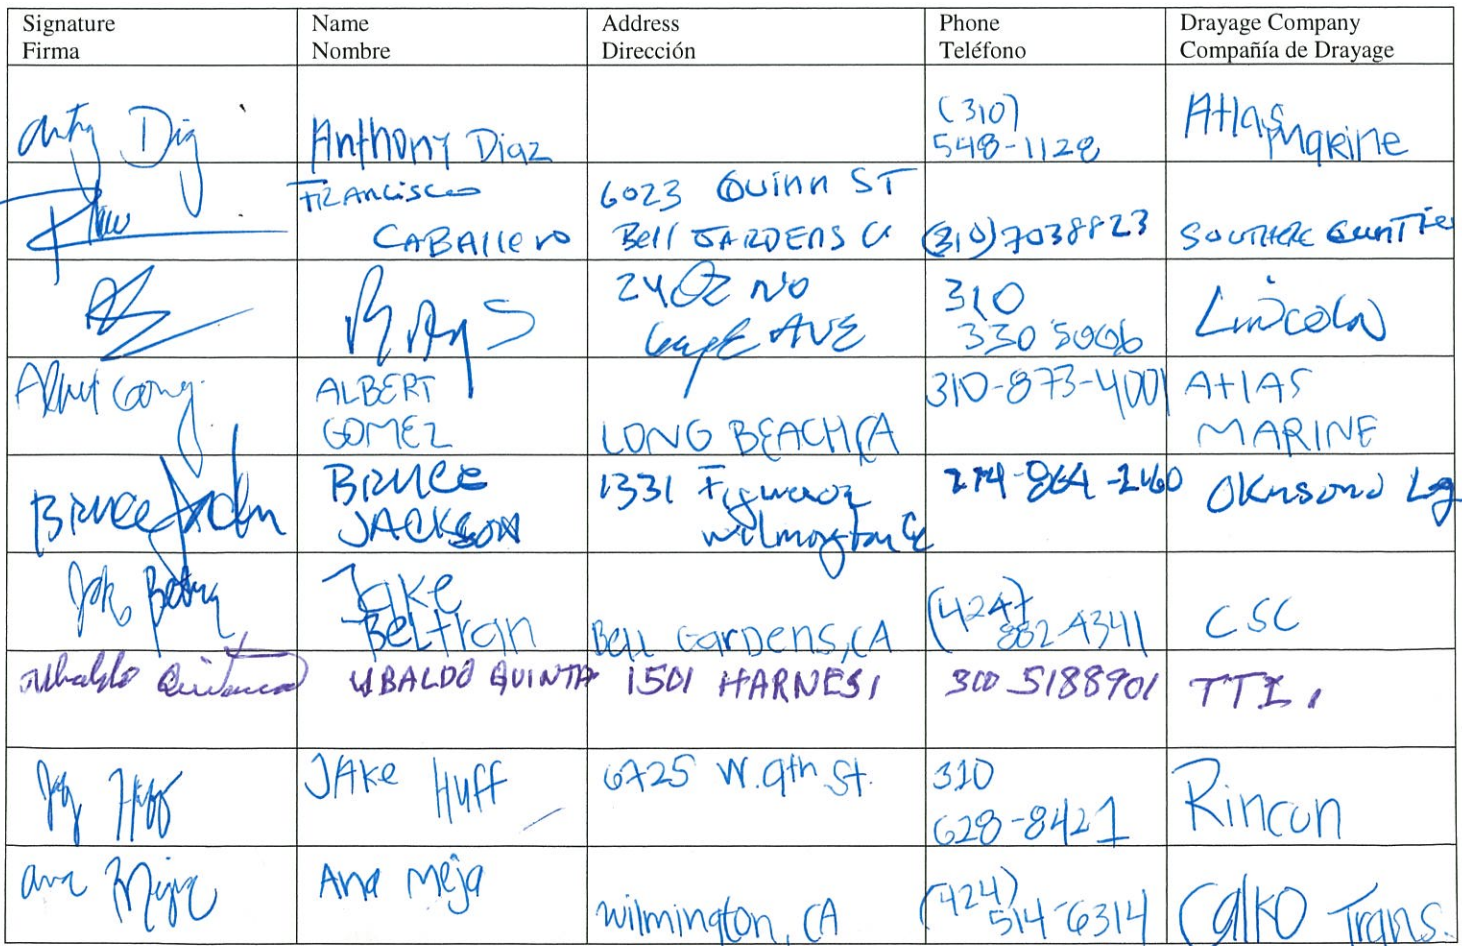 Signature
Firma
Name
Nombre
Address
Dirección
Phone
Teléfono
Drayage Company
Compañía de Drayage
Anthony Diaz
(310)
548-1128
Atlas Marine
Francisco
CABAllero
6023 Quinn ST
Bell GARDENS CA
(310)7038823
2402 NO
AVE
310
330 5006
Lincoln
ALBERT
GOMEZ
LONG BEACH, CA
310-873-4001
AtlAS
MARINE
Bruce Jackson
BRUCE
JACKSON
1331 Figueroa
Wilmington Ca
Jake
Beltran
Bell Gardens, CA
(424)
882-4341
CSC
Ubaldo Quintana
UBALDO QUINTA
1501 HARNESI
310 5188901
TTI,
JAke Huff
6725 W. 9th St.
310
628-8421
Rincon
Ana Mejia
Ana Meja
Wilmington, CA
(424)
514-6314
Calko Trans.